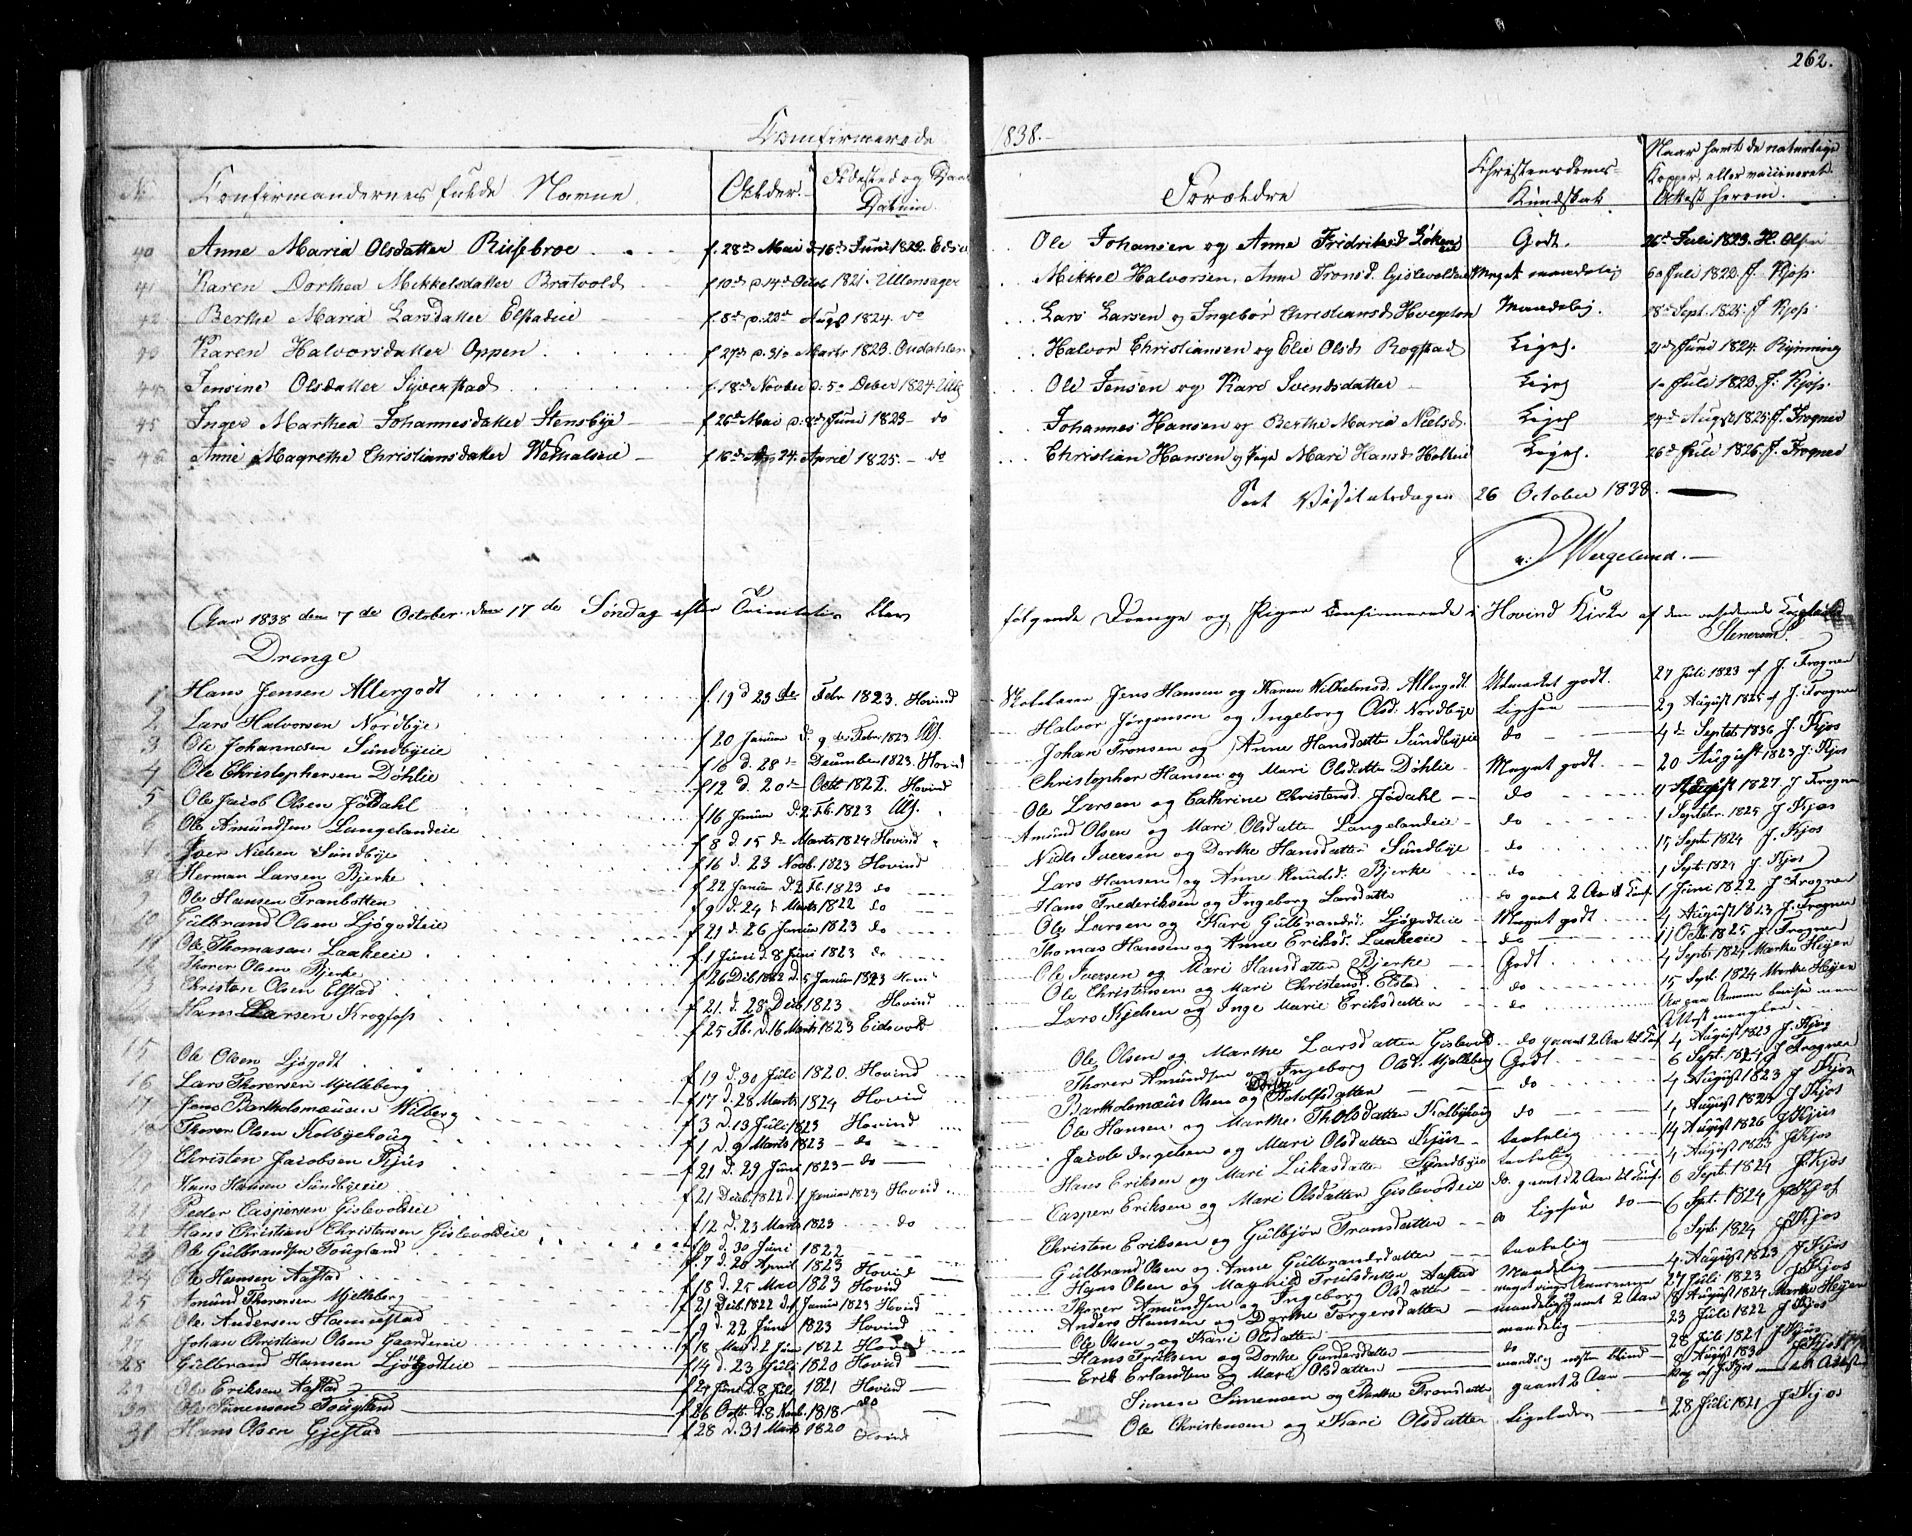 262.
Confirmerede 1838.
No Confirmandernes fulde Navne Alder. Fødested og Daab Datum. Forældre Christendoms-Kundskab Naar havt de naturlige Kopper, eller vaccineret. Attest herom.
40 Anne Maria Olsdatter Riisebroe f. 28de Mai d. 16de Juni 1822. Ole Johansen og Anne Fridriksd Godt. 26de Juli 1823. H. Olsen
41 Karen Dorthea Mikkelsdatter Bratvold f 10de d. 14de Octob 1821. Ullensager Mikkel Halvorsen, Anne Tronsd. Meget maadelig Juli 1823. J. Kjos.
42 Berthe Maria Larsdatter Elstadeie f. 8de d. 22de Augst 1824. do Lars Larsen og Ingebor Christiansd Maadelig. Sept. 1825. J Kjos.
43 Karen Halvorsdatter Oppen f 27de d. 31te Marts 1823. Halvor Christiansen og Elie Olsd. Rogstad Ligeh. 21de Juni 1824. Rynning
44 Jensine Olsdatter Syverstad f. 18de Novber d. 5te Decber 1824. Ole Jensen og Kari Svendsdatter Ligeh Juli 1823. J. Kjos.
45 Inger Marthea Johannesdatter Stensbye f 26de Mai d. 8de Juni 1823 do Johannes Hansen og Berthe Maria Nielsd. Ligeh 24de August 1825. J. Trogner
46 Anne Magrethe Christiansdatter f 16de d. 24. April 1825. do Christian Hansen og Mari Hansd Ligeh. 26de Juli 1826. J. Trogner
Seet Visitatsdagen 26 October 1838.
n: Wergeland.
Aar 1838 den 7de October den 17de Søndag efter Trinitatis blev følgende Drenge og Piger Confirmerede i Hovind Kirke af den residerende Stenersen.
Drenge
1 Hans Jensen Allergodt f. 19 d 23de Febr 1823 Hovind Jens Hansen og Karen Wilhelmsd. Allergodt. Udmærket godt. 27 Juli 1823 af J. Trogner
2 Lars Halvorsen Nordbye f 20 Januar d. 9de Febr. 1823 Ull. Halvor Jørgensen og Ingeborg Olsd. Nordbye Ligesaa 29 August 1825 af J. Trogner
3 Ole Johannesen Sundbyeie f 16 d. 28de December 1823. Hovind Johan Tronsen og Anne Hansdatter Sundbyeie do 4de Septeb 1836 J. Kjos
4 Ole Christophersen Døhlie f 12 d. 20de Octb 1822. Hovind Christopher Hansen og Mari Olsdatter Døhlie Meget godt. 20 August 1823 J. Kjos
5 Ole Jacob Olsen Jødahl f 16 Januar d. 2 Fb. 1823 Ull. Ole Larsen og Cathrine Christensd. Jødahl do 4 August 1827 J Trogner
6 Ole Amundsen Langelandeie f 8 d. 15de Marts 1824 Hovind Amund Olsen og Mari Olsdatter Langelandeie do 1 Septebr. 1825 J Kjos
Iver Nielsen Sundbye f 16 d. 23 Novb. 1823 Hovind Niels Iversen og Dorthe Hansdatter Sundbye do 15 Septr 1824 J. Kjos
8 Herman Larsen Bjerke f 22 Januar d. 2 Fb. 1823 do Lars Hansen og Anne Knudsd. Bjerke do 1 Septr 1824 J. Kjos
9 Ole Hansen Tranbotten f 9 d. 24 Marts 1822 do Hans Frederiksen og Ingeborg Larsdatter do gaaet 2 Aar 1 Juni 1822 J Trogner
10 Gulbrand Olsen Ljøgodteie f 21 d. 26 Januar 1823 do Ole Larsen og Kari Gulbrandsd. Ljøgodteie Meget godt 4 August 1823 J. Trogner
11 Ole Thomasen Laakeeie f 1 Juni d. 8 Juni 1823 do Thomas Hansen og Anne Eriksd. Laakeeie do 11 Octb 1825 J. Trogner
12 Thorer Olsen Bjerke f 26 Dcb. 1822 d. 5 Januar 1823 Hovind Ole Iversen og Mari Hansdatter Bjerke Godt 4 Septb 1824 Marthe Heyer
13 Christen Olsen Elstad f. 21 d. 28 Dcb 1823 Hovind Ole Christensen og Mari Christensd. Elstad do 15 Sept. 1824 Marthe Heyer
Hans Larsen Krogfoss f 25 Fb. d. 16 Marts 1823 Eidsvold Lars Kjelsen og Inge Marie Eriksdatter do Attest mangler.
15 Ole Olsen Ljøgodt f 19 d. 30 Juli 1820. Hovind Ole Olsen og Marthe Larsdatter Gislevold do gaaet 2 Aar 4 August 1823 J. Kjos
16 Lars Thorersen Mjelleberg f 17 d. 28 Marts 1824 Hovind Thorer Amundsen og Ingeborg Olsd. Mjelleberg Godt 6 Sept. 1824 J Trogner
17 Jens Bartholomæusen Wilberg f 3 d. 13 Juli 1823 Hovind Bartholomæus Olsen og Dorthe Botolfsdatter do 4 August 1823 J Kjos
18 Thorer Olsen Kolbyehoug f 1 d. 9 Marts 1823 do Ole Hansen og Marthe Tholsdatter Kolbyehoug do August 1824 J Kjos
19 Christen Jacobsen Kjus f 21 d. 29 Juni 1823 do Jacob og Mari Olsdatter Kjus taalelig 14 August 1826 J Kjos
20 Hans Hansen Sundbyeie f 21 Decb. 1822 d. 1 Januar 1823 Hovind Hans Eriksen og Mari Lukasdatter Sundbyeie taalelig 4 August 1823 J Kjos
21 Peder Caspersen Gislevoldeie f 12 d. 23 Marts 1823 do Casper Eriksen og Mari Olsdatter Gislevoldeie do. gaaet 2 Aar 6 Sept. 1824 J Kjos
22 Hans Christian Christensen Gislevoldeie f 9 d. 30 Juni 1822 Christen Eriksen og Gulbjør Tronsdatter do Ligesaa do 6 Spt. 1824 J Kjos
23 Ole Gulbrandsen Tougland f. 7 d. 20 April 1823 Hovind Gulbrand Olsen og Anne Gulbrandsdatter taalelig 6 Septb. 1824 J Kjos
24 Ole Hansen Aastad f 18 d. 25 Mai 1823 Hovind Hans Olsen og Magnild Trulsdatter Aastad Maadelig 4 August 1823 J Kjos
25 Amund Thorersen Mjelleberg f 21 Dcb. 1822 d. 1 Januar 1823 Hovind Thorer Amundsen og Ingeborg Olsdatter 27 Juli 1823 J Kjos
26 Ole Andersen Hammerstad f 9 d. 22 Juni 1823 Hovind Anders Hansen og Dorthe Torgersdatter maadelig gaaet 2 Aar August 1824 Marthe Heyer
27 Johan Christian Olsen Gaardereie f 18 Mai d. 2 Juni 1822 Hovind Ole Olsen og Kari Olsdatter maadelig 23 Juli 1822 J Kjos
28 Gulbrand Hansen Ljøgodteie f 14 d. 23 Juli 1820 Hovind Hans Eriksen og Dorthe Gundersdatter do 28 Juli 1821 J Kjos
29 Ole Eriksen Aastad f 24 Juni d. 8 Juli 1821 Hovind Erik Erlandsen og Mari Olsdatter maadelig næsten blind 8 August 1830 J Kjos
30 Ole Simensen Tougland f 26 Octb. d. 8 Novb. 1818 do Simen Simensen og Marthe Tronsdatter gaaet 2 Aar
31 Hans Olsen Gjestad f 28 d. 31 Marts 1820 Hovind Ole Christensen og Kari Olsdatter Ligeledes 28 Juli 1821 J Kjos